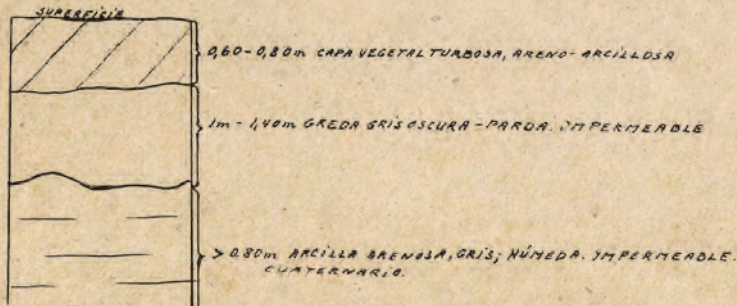 SUPERFICIE
0,60-0,80m CAPA VEGETAL TURBOSA, ARENO-ARCILLOSA
1m-1,40m GREDA GRIS OSCURA-PARDA. IMPERMEABLE
>0.80m ARCILLA ARENOSA, GRIS; HÚMEDA. IMPERMEABLE.
CUATERNARIO.